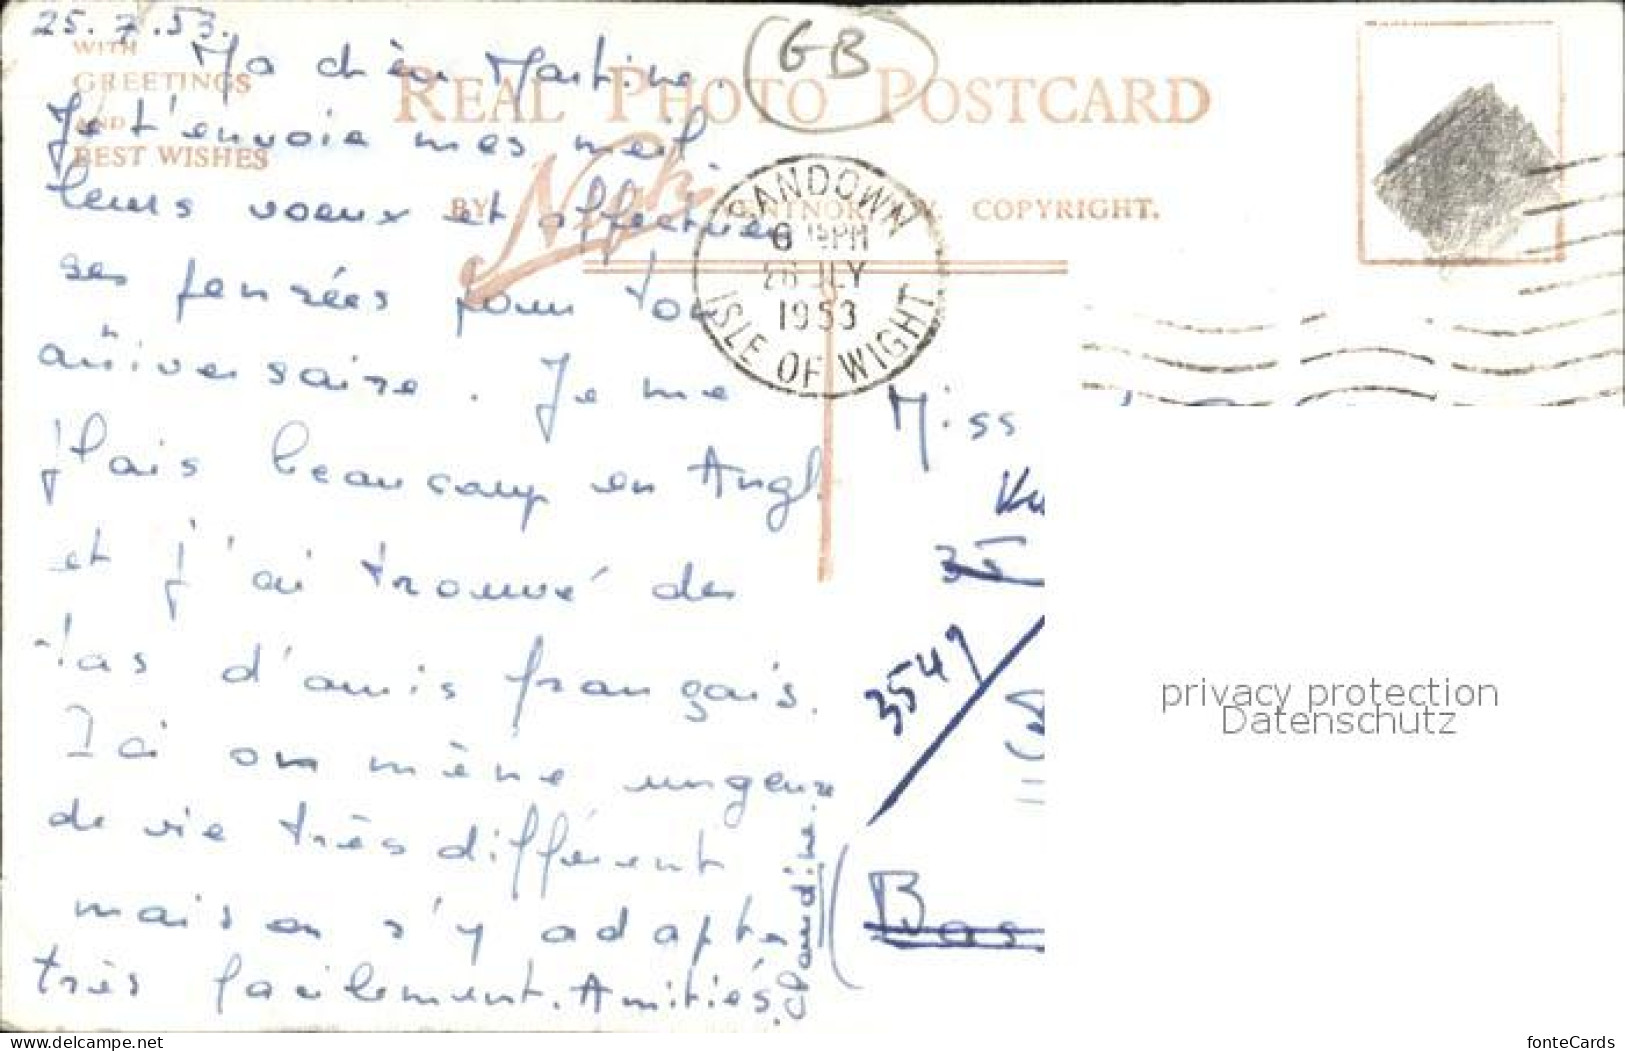 25.7.53.
WITH
GREETINGS
AND
BEST WISHES
REAL PHOTO POSTCARD
GB
BY Nigh VENTNOR COPYRIGHT.
SANDOWN
6 15PM
26 JLY
1953
ISLE OF WIGHT
Ma chère Martine.
Je t'envoie mes meil
leurs voeux et affectueu
ses pensées pour ton
anniversaire. Je me
plais beaucoup en Angl.
et j'ai trouvé des
tas d'amis français.
Ici on mène un genre
de vie très différent
mais on s'y adapte
très facilement. Amitiés.
Claudine.
Miss
35
3549
Bas
privacy protection
Datenschutz
www.delcampe.net
fonteCards